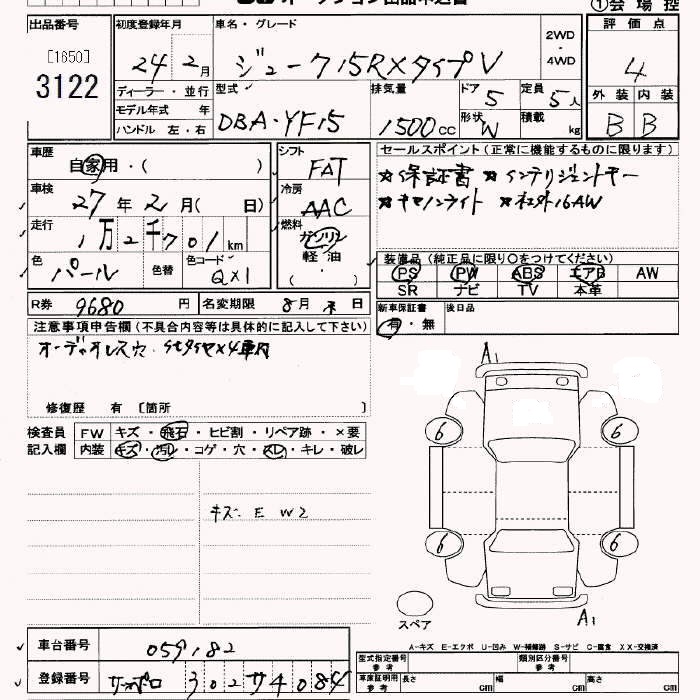 ①会場控
出品番号
[1650]
3122
初度登録年月
24年2月
車名・グレード
ジューク15RXタイプV
2WD
・
4WD
評価点
4
外装 内装
B B
ディーラー・並行
モデル年式 年
ハンドル 左・右
型式
DBA-YF15
排気量
1500cc
ドア 5
形状 W
定員 5人
積載 kg
車歴
自家用・( )
車検
27年2月( 日)
走行
1万2千701km
色
パール
色替
色コード
QX1
シフト
FAT
冷房
AAC
燃料
ガソリン
軽油
・
( )
セールスポイント(正常に機能するものに限ります)
☆保証書 ☆インテリジェントキー
☆キセノンライト ☆社外16AW
装備品(純正品に限り〇をつけてください)
PS PW ABS エアB AW
SR ナビ TV 本革
R券 9680円
名変期限 8月末日
新車保証書
有・無
後日品
注意事項申告欄(不具合内容等は具体的に記入して下さい)
オーディオレス穴.
修復歴 有 [箇所
検査員 FW キズ・飛石・ヒビ割・リペア跡・×要
記入欄 内装 キズ・汚レ・コゲ・穴・スレ・キレ・破レ
キズ E W2
A1
6 6
6 6
スペア
A1
A-キズ E-エクボ U-凹み W-補修跡 S-サビ C-腐食 XX-交換済
車台番号 059182
登録番号 サッポロ 302 サ 4084
型式指定番号 参考
類別区分番号 参考
車庫証明用 参考 長さ cm 幅 cm 高さ cm